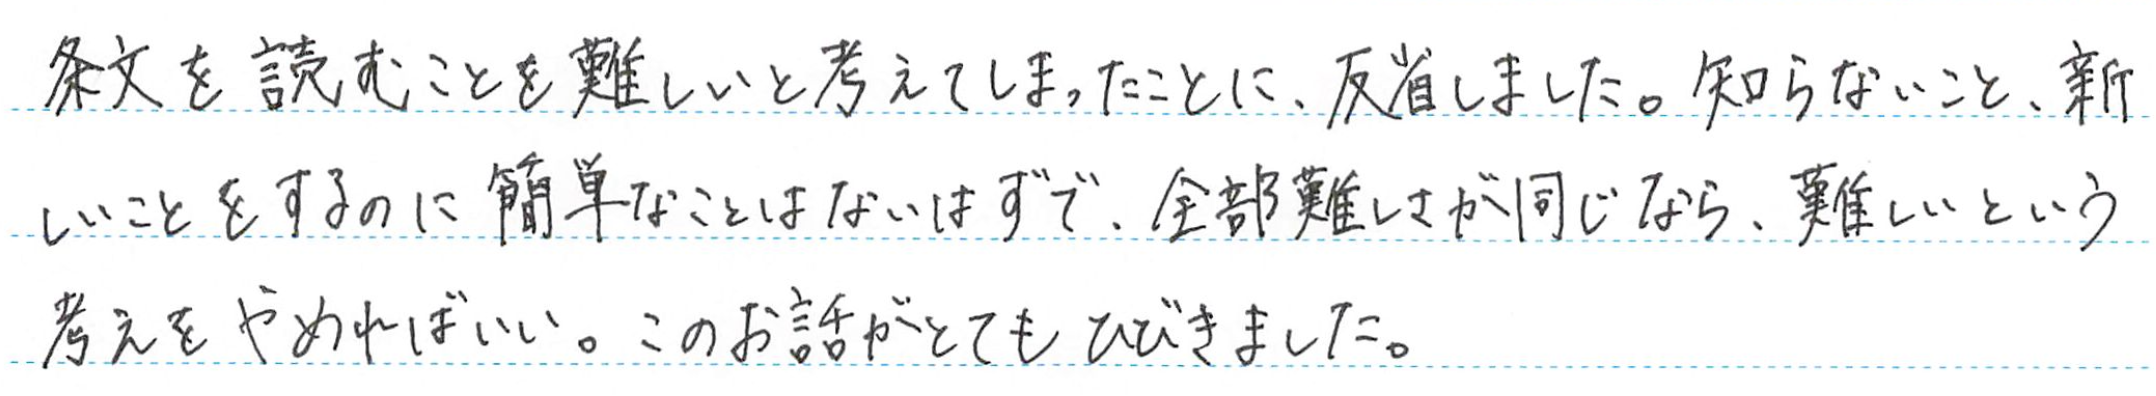 条文を読むことを難しいと考えてしまったことに、反省しました。知らないこと、新
しいことをするのに簡単なことはないはずで、全部難しさが同じなら、難しいという
考えをやめればいい。このお話がとてもひびきました。